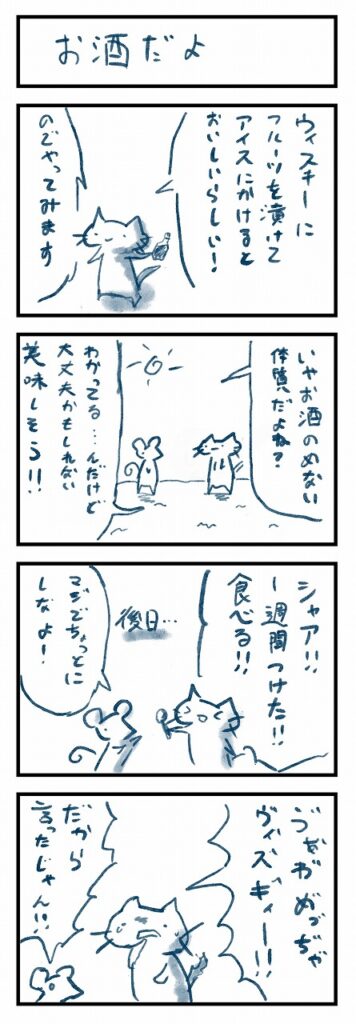 お酒だよ
ウィスキーに
フルーツを漬けて
アイスにかけると
おいしいらしい!
のでやってみます
いやお酒のめない
体質だよね?
わかってる…んだけど
大丈夫かもしれない
美味しそう!!
シャア!!
1週間つけた!!
食べる!!
後日…
マジでちょっとに
しなよ!
ヴィズギィー!!
だから
言ったじゃん!!